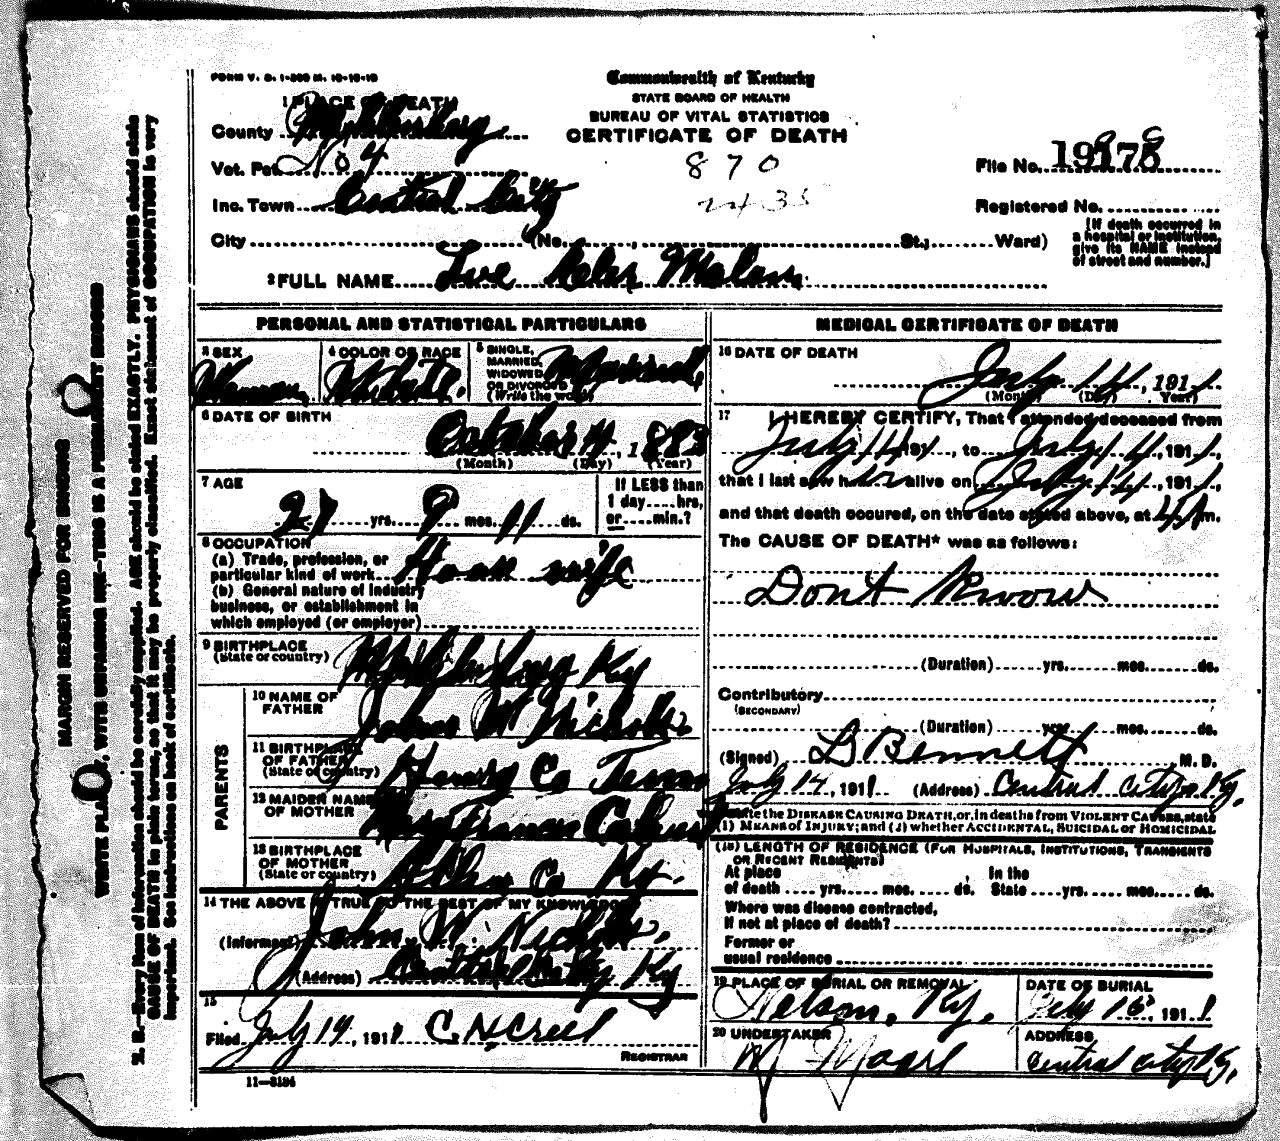 FORM V. S. 1-300 M. 10-10-10
Commonwealth of Kentucky
STATE BOARD OF HEALTH
BUREAU OF VITAL STATISTICS
CERTIFICATE OF DEATH
1 PLACE OF DEATH
County Muhlenberg
Vot. Pct. No 4
Inc. Town Central City
City (No. , St.; Ward)
870
2435
File No.
Registered No.
[If death occurred in
a hospital or institution,
give its NAME instead
of street and number.]
2 FULL NAME
PERSONAL AND STATISTICAL PARTICULARS
3 SEX
Woman
4 COLOR OR RACE
White
5 SINGLE,
MARRIED,
WIDOWED
OR DIVORCED
(Write the word)
Married
6 DATE OF BIRTH
October 4, 1883
(Month) (Day) (Year)
7 AGE
27 yrs. 9 mos. 11 ds.
If LESS than
1 day hrs.
or min.?
8 OCCUPATION
(a) Trade, profession, or
particular kind of work House wife
(b) General nature of industry
business, or establishment in
which employed (or employer)
9 BIRTHPLACE
(State or country) Muhlenberg Ky
PARENTS
10 NAME OF
FATHER John W Nichols
11 BIRTHPLACE
OF FATHER
(State or country) Henry Co Tenn
12 MAIDEN NAME
OF MOTHER Frances
13 BIRTHPLACE
OF MOTHER
(State or country) Allen Co Ky.
14 THE ABOVE IS TRUE TO THE BEST OF MY KNOWLEDGE
(Informant) John W. Nichols.
(Address) Central City Ky
15
Filed July 14, 1911 C. N Creel
REGISTRAR
11-3184
MEDICAL CERTIFICATE OF DEATH
16 DATE OF DEATH
July 14, 1911
(Month) (Day) Year)
17 I HEREBY CERTIFY, That I attended deceased from
July 14 191, to July 14, 1911,
that I last saw her alive on July 14, 1911,
and that death occured, on the date stated above, at m.
The CAUSE OF DEATH* was as follows:
Dont Know
(Duration) yrs. mos. ds.
Contributory
(SECONDARY)
(Duration) yrs. mos. ds.
(Signed) Bennett M. D.
July 14, 1911 (Address) Central city Ky.
State the DISEASE CAUSING DEATH, or, in deaths from VIOLENT CAUSES, state
(1) MEANS of INJURY; and (2) whether ACCIDENTAL, SUICIDAL or HOMICIDAL
(18) LENGTH OF RESIDENCE (FOR HOSPITALS, INSTITUTIONS, TRANSIENTS
OR RECENT RESIDENTS)
At place , In the
of death yrs. mos. ds. State yrs. mos. ds.
Where was disease contracted,
If not at place of death?
Former or
usual residence
19 PLACE OF BURIAL OR REMOVAL
Nelson, Ky.
DATE OF BURIAL
July 15, 1911
20 UNDERTAKER
ADDRESS
Central city Ky.
MARGIN RESERVED FOR BINDING
WRITE PLAINLY, WITH UNFADING INK—THIS IS A PERMANENT RECORD
N. B.—Every item of information should be carefully supplied. AGE should be stated EXACTLY. PHYSICIANS should state
CAUSE OF DEATH in plain terms, so that it may be properly classified. Exact statement of OCCUPATION is very
important. See instructions on back of certificate.